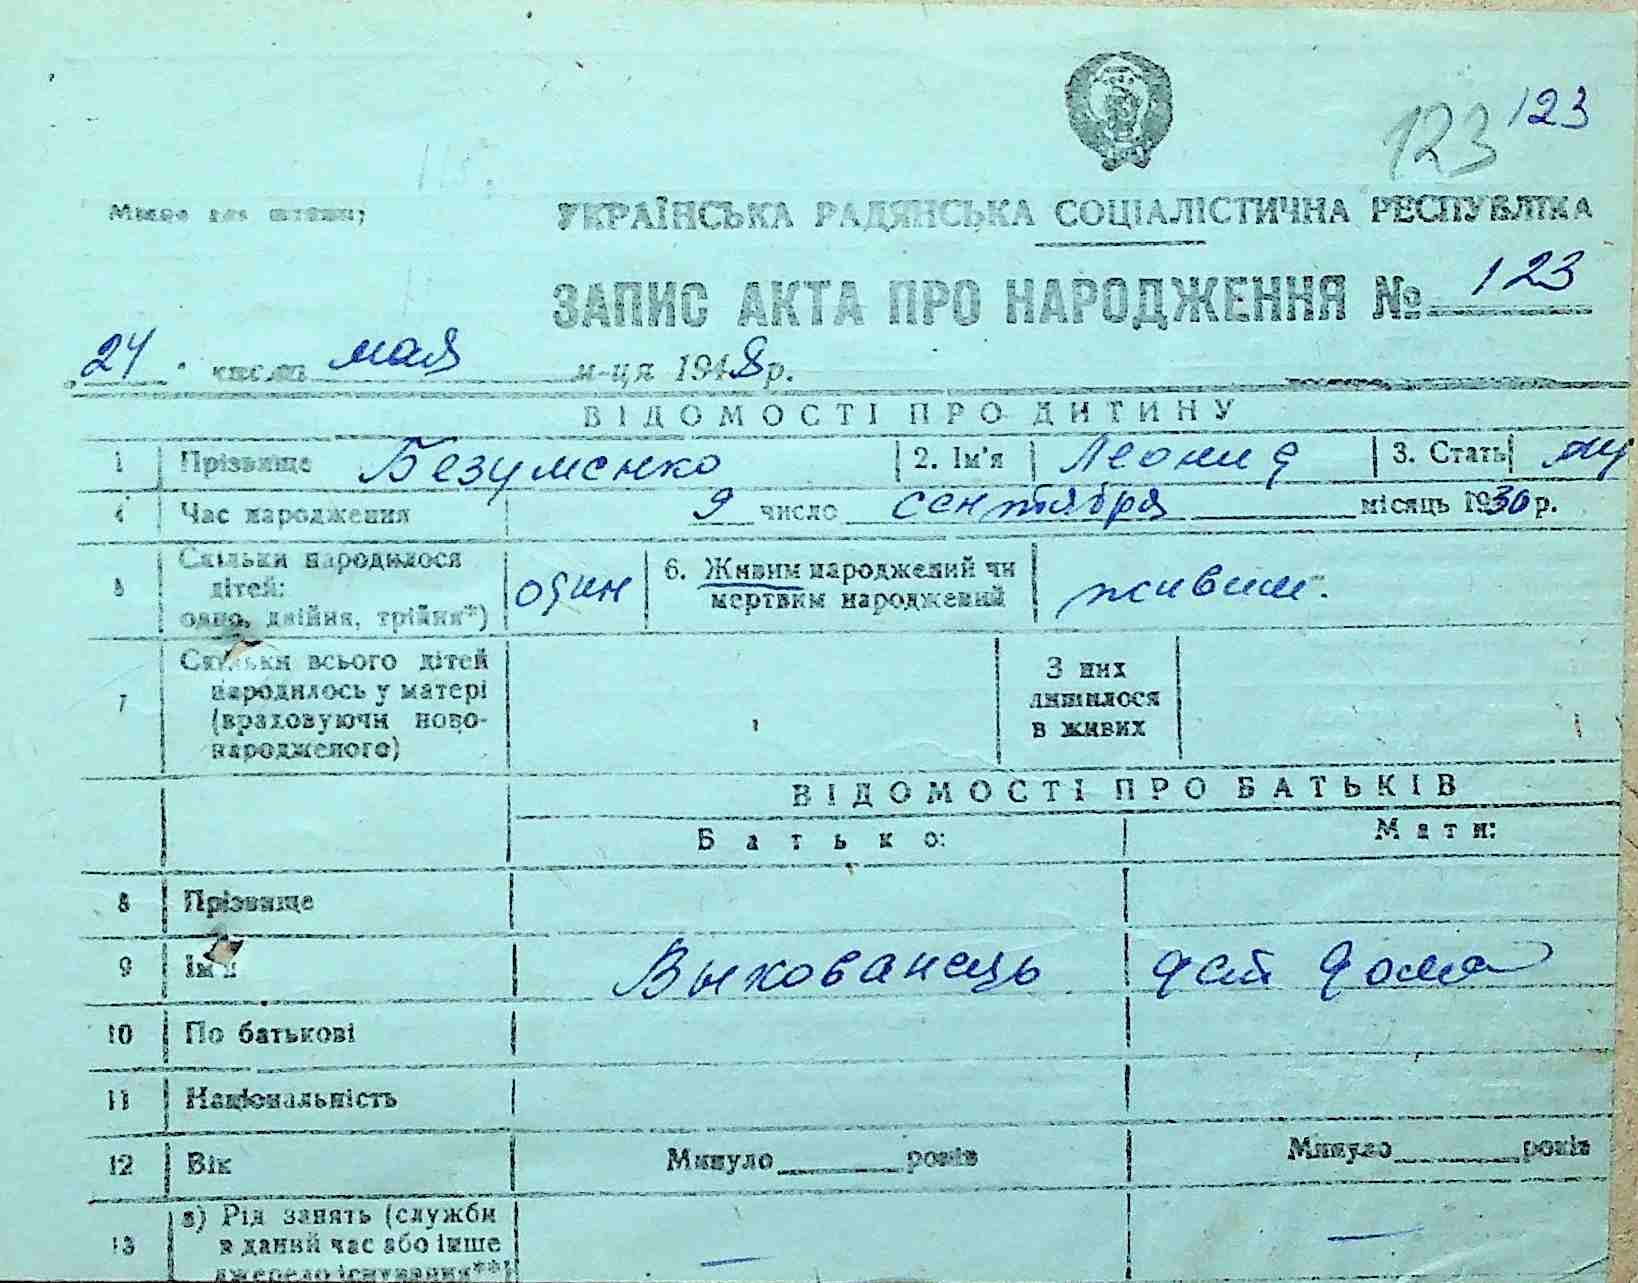 123 123
Місце для штампу;
УКРАЇНСЬКА РАДЯНСЬКА СОЦІАЛІСТИЧНА РЕСПУБЛІКА
ЗАПИС АКТА ПРО НАРОДЖЕННЯ № 123
24 числа мая м-ця 1948 р.
ВІДОМОСТІ ПРО ДИТИНУ
1 Прізвище Безуменко 2. Ім'я Леонид 3. Стать му
4 Час народження 9 число сентября місяць 1930 р.
5 Скільки народилося
дітей:
одно, двійня, трійня*) один 6. Живим народжений чи
мертвим народжений живим.
7 Скільки всього дітей
народилось у матері
(враховуючи ново-
народженого)
З них
лишилося
в живих
ВІДОМОСТІ ПРО БАТЬКІВ
Батько: Мати:
8 Прізвище
9 Ім'я Выхованець дет дома
10 По батькові
11 Національність
12 Вік Минуло ______ років Минуло ______ років
13 а) Рід занять (служби
в даний час або інше
джерело існування**) — —